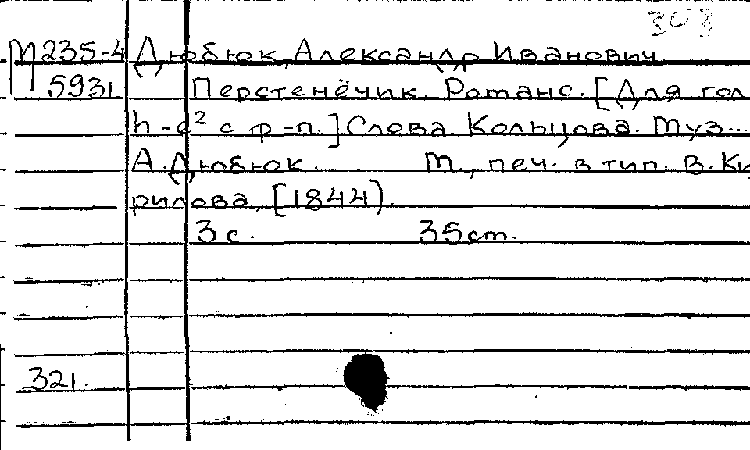 303
М 235-4 Дюбюк, Александр Иванович
5931 Перстенёчик. Романс. [Для гол
h-e² с ф-п.] Слова Кольцова. Муз...
А. Дюбюк. М., печ. в тип. В. Ки
рилова, [1844].
3 с. 35 см.
321.